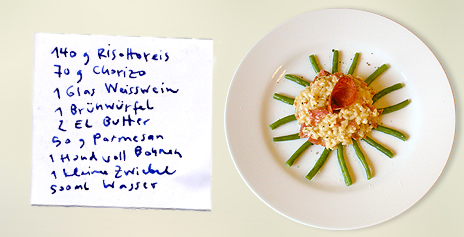 140 g Risottoreis
70 g Chorizo
1 Glas Weisswein
1 Brühwürfel
2 EL Butter
50 g Parmesan
1 Hand voll Bohnen
1 kleine Zwiebel
500ml Wasser